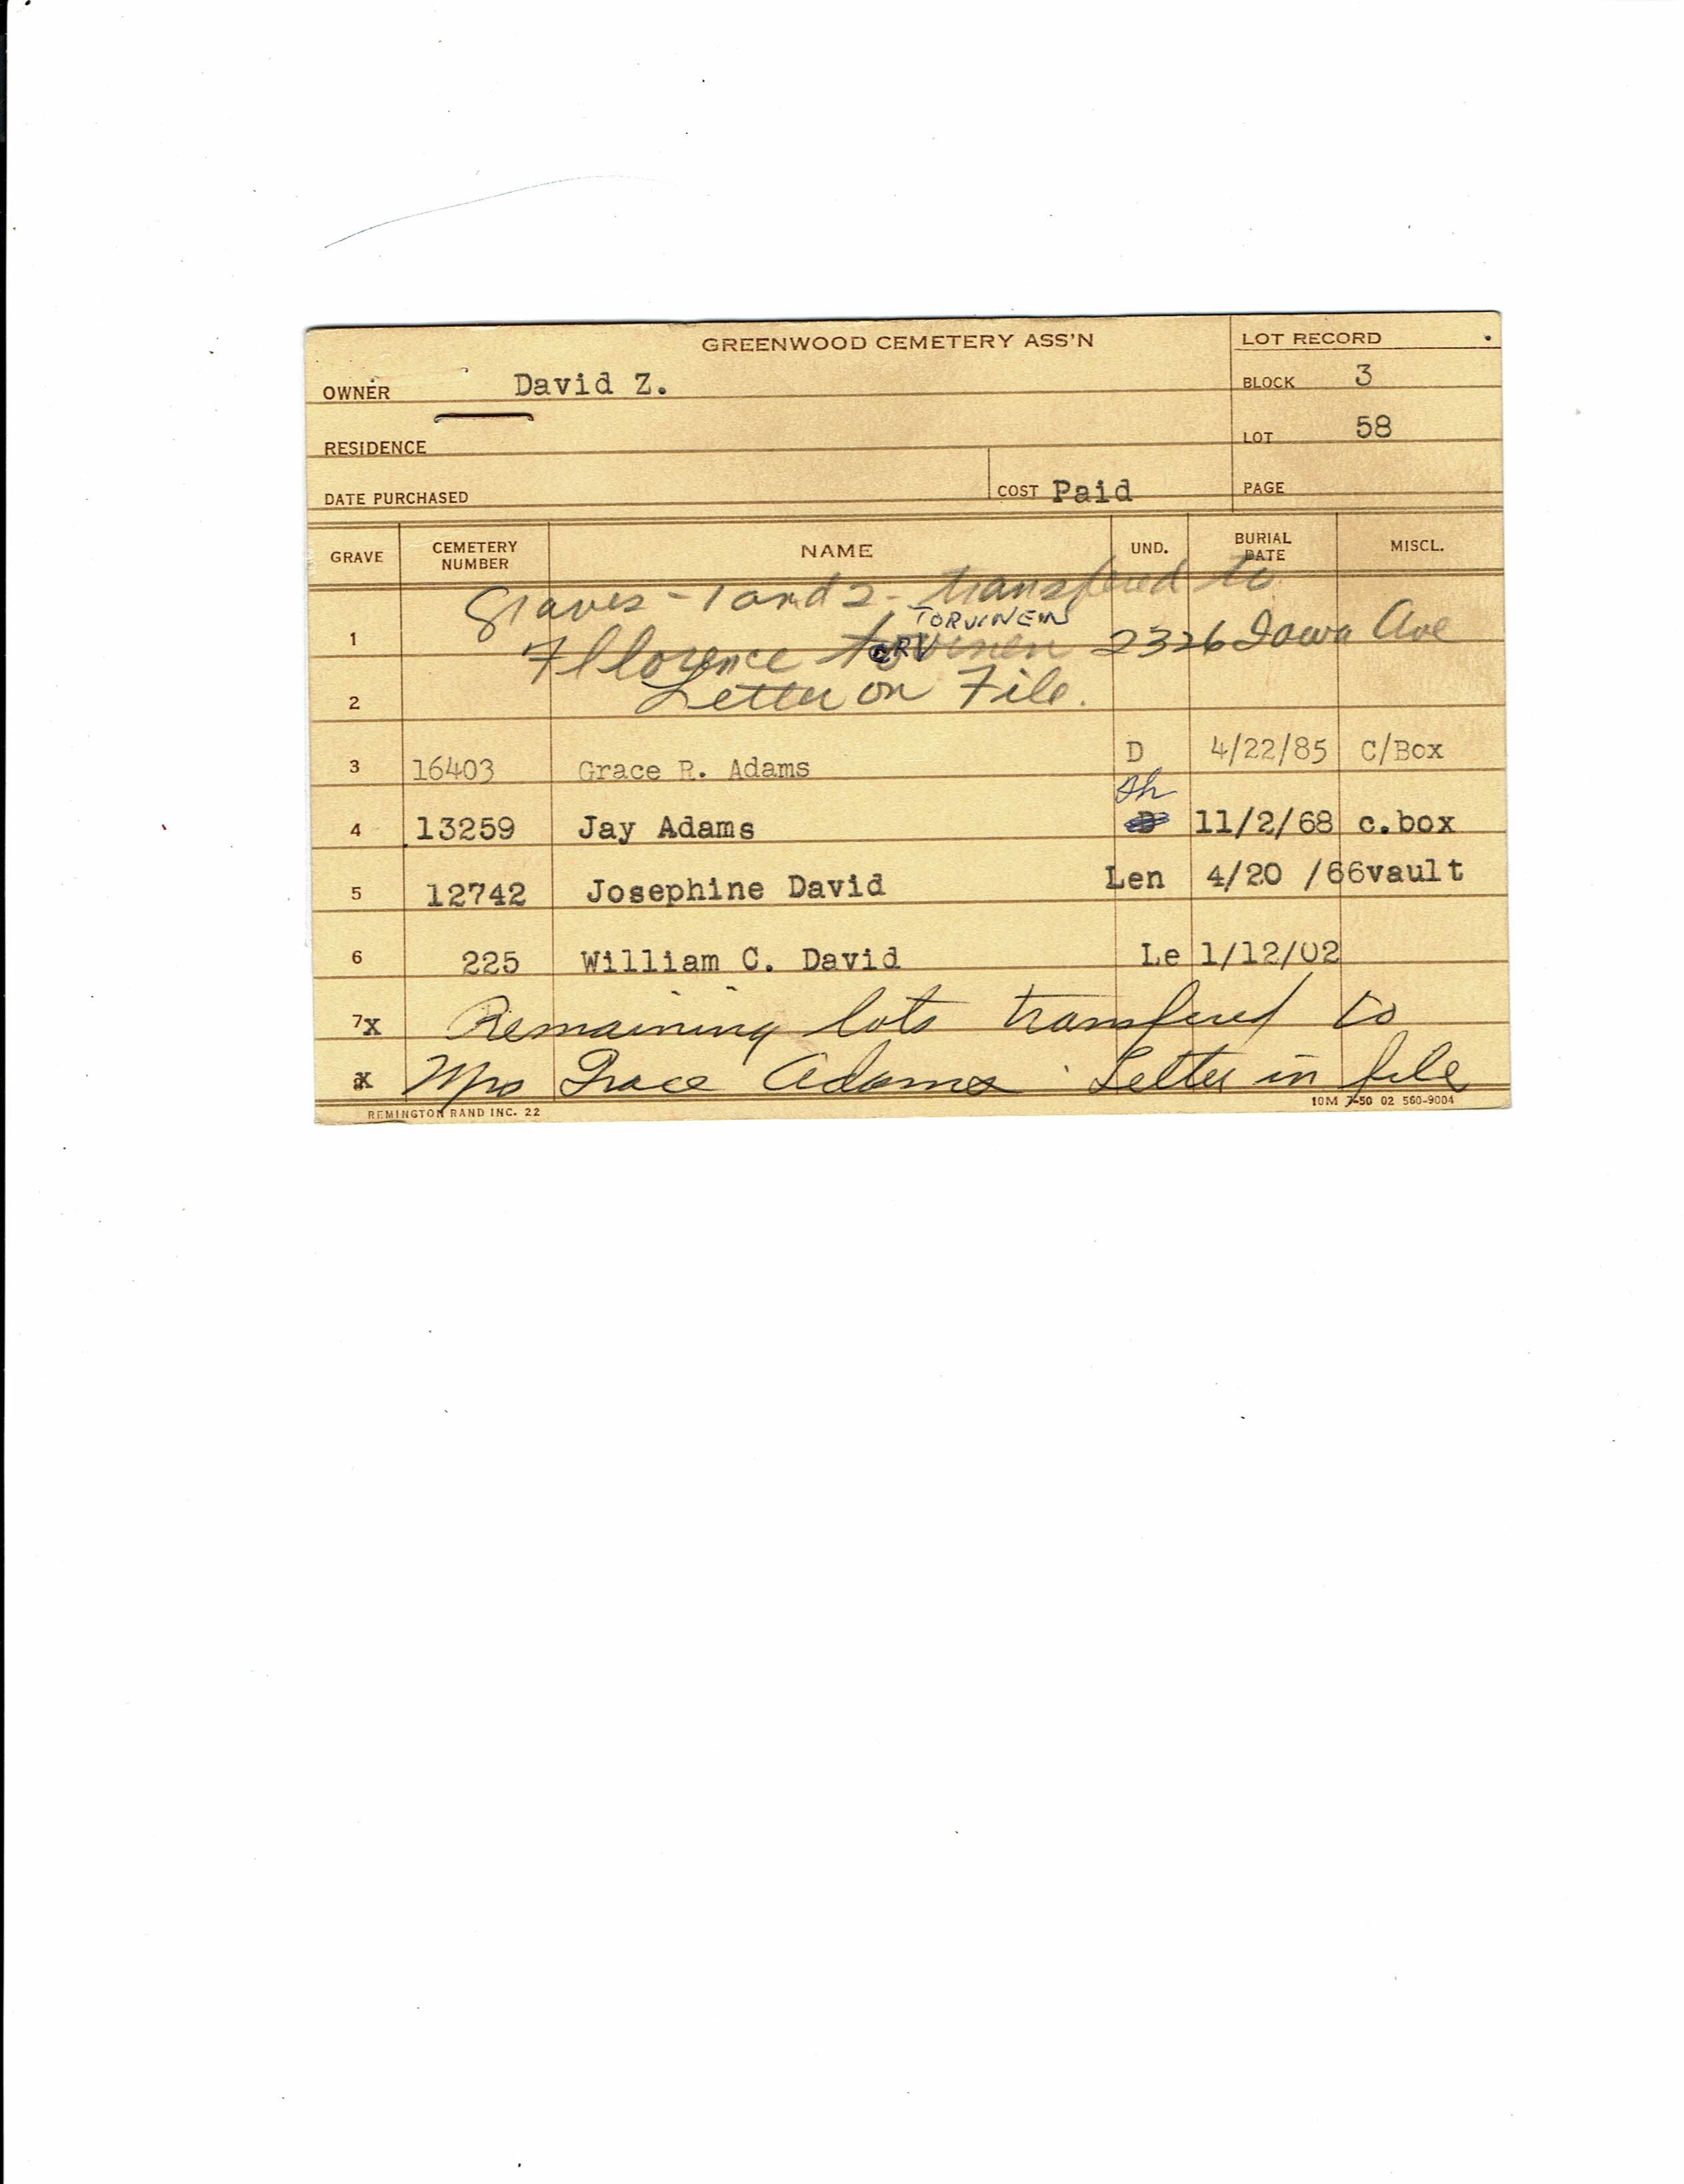 GREENWOOD CEMETERY ASS'N
LOT RECORD
OWNER David Z.
BLOCK 3
RESIDENCE
LOT 58
DATE PURCHASED
COST Paid
PAGE
GRAVE CEMETERY NUMBER NAME UND. BURIAL DATE MISCL.
Graves - 1 and 2 - transfered to
TORVINEN
1 Fllorence 2326 Iowa Ave
2 Letter on File.
3 16403 Grace R. Adams D 4/22/85 C/Box
4 13259 Jay Adams 11/2/68 c.box
5 12742 Josephine David Len 4/20 /66vault
6 225 William C. David Le 1/12/02
7x Remaining lots transfered to
x Mrs Grace Adams. Letter in file
REMINGTON RAND INC. 22
10M 7-50 02 560-9004